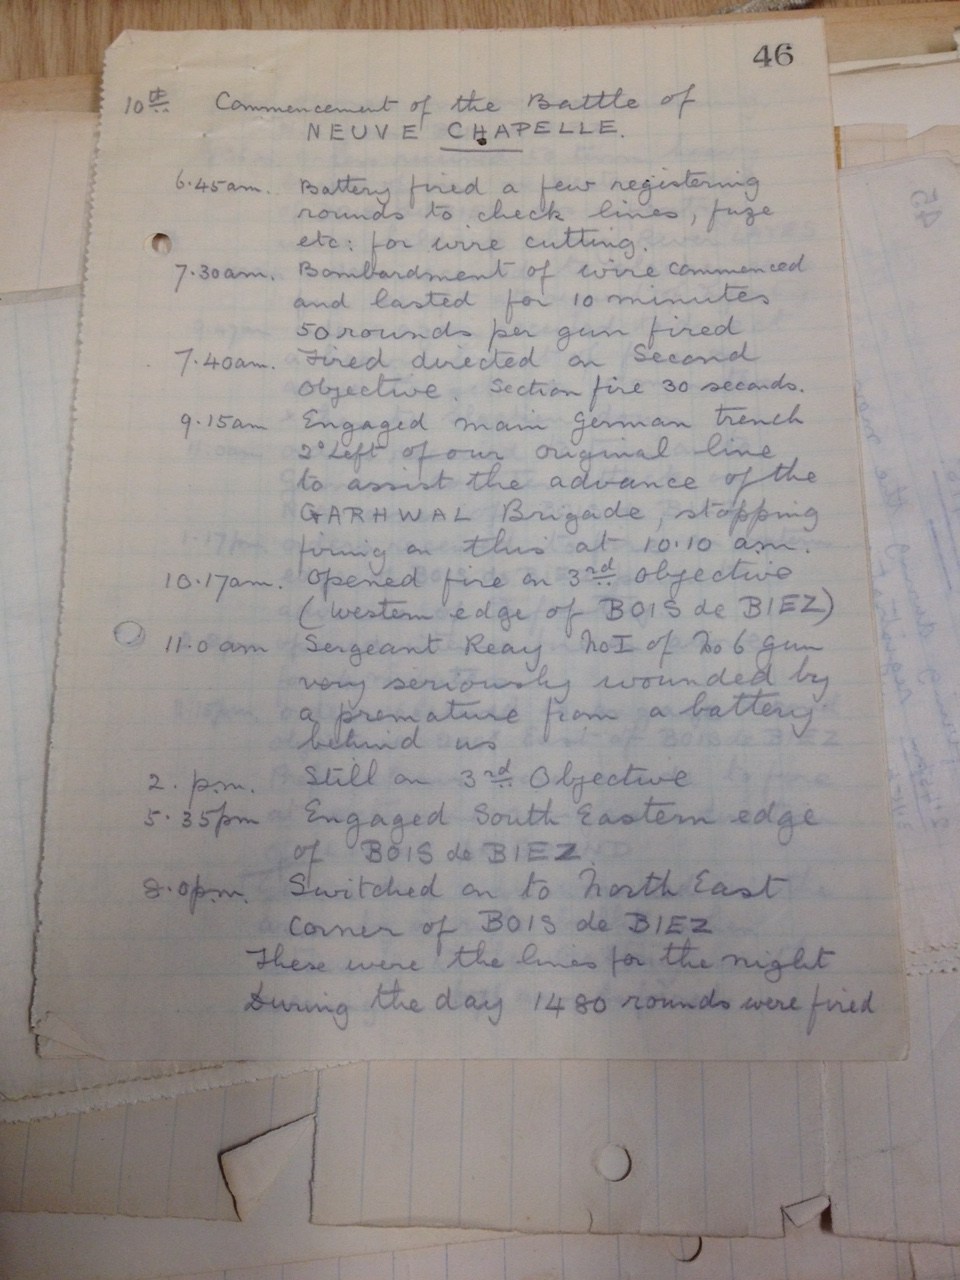 46
10th Commencement of the Battle of
NEUVE CHAPELLE.
6.45am. Battery fired a few registering
rounds to check lines, fuze
etc: for wire cutting.
7.30am. Bombardment of wire commenced
and lasted for 10 minutes
50 rounds per gun fired
7.40am. Fired directed on Second
Objective. Section fire 30 seconds.
9.15am Engaged main German trench
2° Left of our original line
to assist the advance of the
GARHWAL Brigade, stopping
firing on this at 10.10 am.
10.17am. Opened fire on 3rd Objective
(Western edge of BOIS de BIEZ)
11.0am Sergeant Reay No I of No 6 gun
very seriously wounded by
a premature from a battery
behind us
2. p.m. Still on 3rd Objective
5.35pm Engaged South Eastern edge
of BOIS de BIEZ.
8.0pm. Switched on to North East
Corner of BOIS de BIEZ
These were the lines for the night
During the day 1480 rounds were fired
45